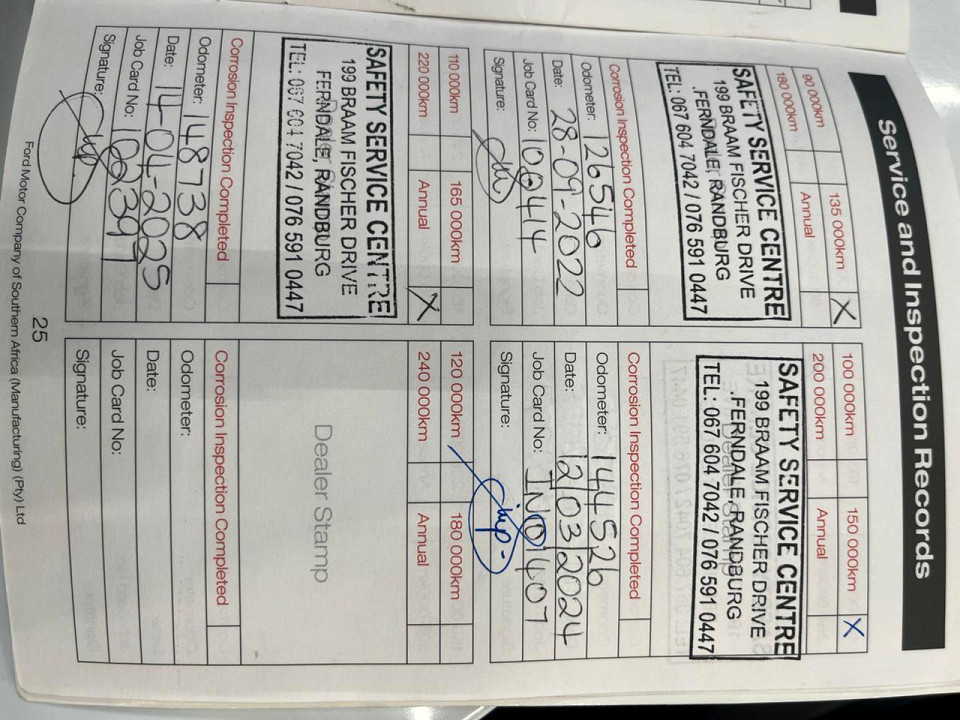 Service and Inspection Records
90 000km 135 000km X
180 000km Annual
SAFETY SERVICE CENTRE
199 BRAAM FISCHER DRIVE
FERNDALE, RANDBURG
TEL: 067 604 7042 / 076 591 0447
Corrosion Inspection Completed
Odometer: 126546
Date: 28-09-2022
Job Card No: 100414
Signature:
100 000km 150 000km X
200 000km Annual
SAFETY SERVICE CENTRE
199 BRAAM FISCHER DRIVE
FERNDALE, RANDBURG
TEL: 067 604 7042 / 076 591 0447
Corrosion Inspection Completed
Odometer: 144526
Date: 12/03/2024
Job Card No: IN01407
Signature:
110 000km 165 000km
220 000km Annual X
SAFETY SERVICE CENTRE
199 BRAAM FISCHER DRIVE
FERNDALE, RANDBURG
TEL: 067 604 7042 / 076 591 0447
Corrosion Inspection Completed
Odometer: 148738
Date: 14-04-2025
Job Card No: 102397
Signature:
120 000km 180 000km
240 000km Annual
Dealer Stamp
Corrosion Inspection Completed
Odometer:
Date:
Job Card No:
Signature:
25
Ford Motor Company of Southern Africa (Manufacturing) (Pty) Ltd